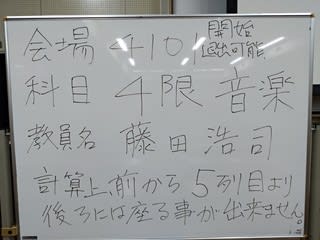 会場 4101 開始
退出可能
科目 4限 音楽
教員名 藤田浩司
計算上、前から5列目より
後ろには座る事が出来ません。